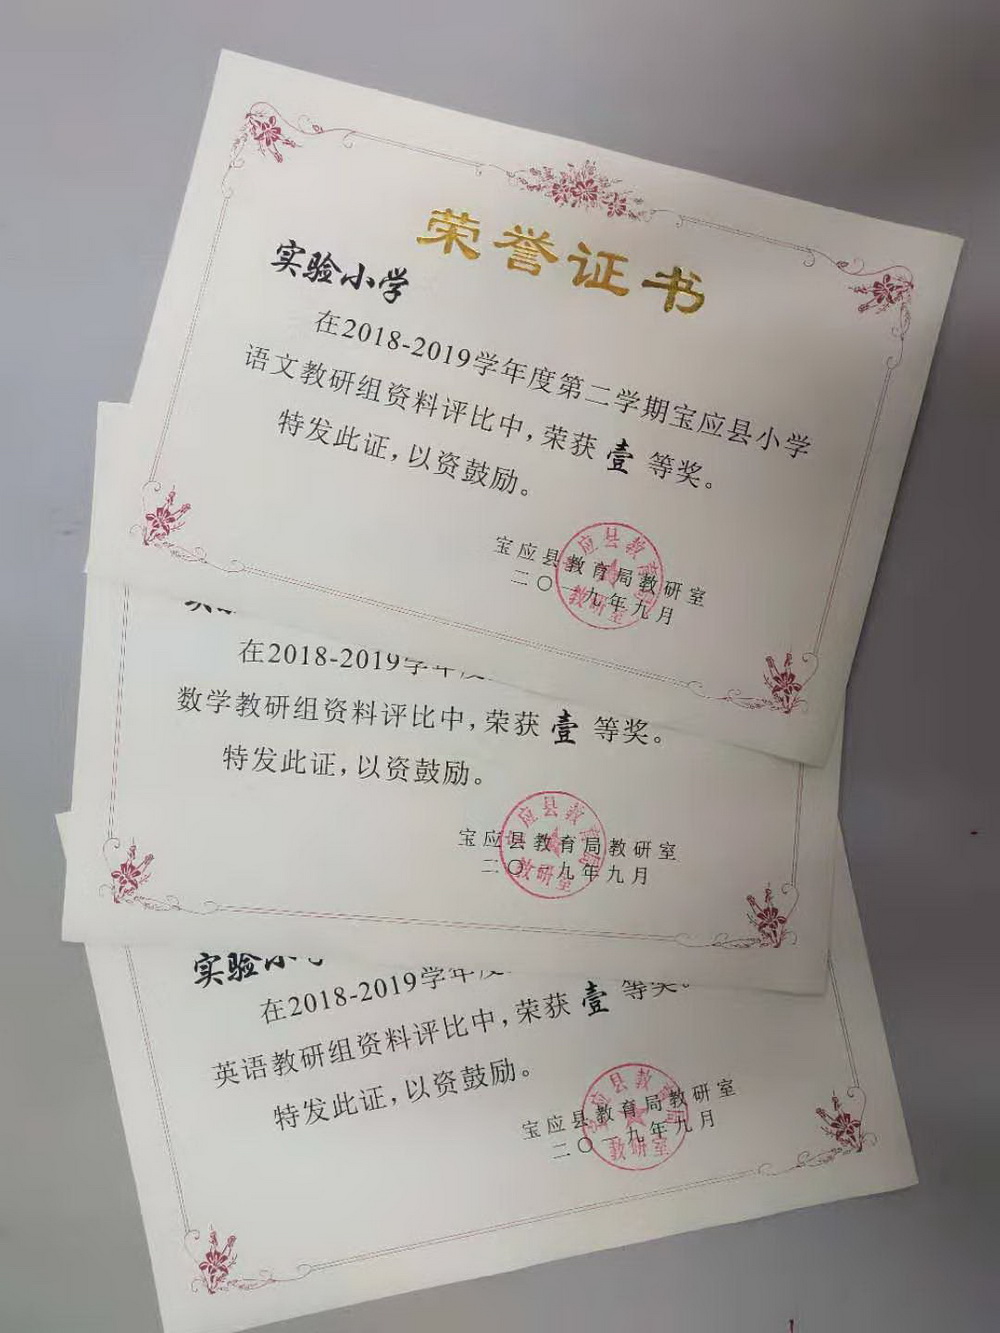 荣誉证书
实验小学
在2018-2019学年度第二学期宝应县小学
语文教研组资料评比中，荣获 壹 等奖。
特发此证，以资鼓励。
宝应县教育局教研室
二〇一九年九月
应县教育局
教研室
在2018-2019学年度
数学教研组资料评比中，荣获 壹 等奖。
特发此证，以资鼓励。
宝应县教育局教研室
二〇一九年九月
宝应县教育局
教研室
实验小
在2018-2019学年度
英语教研组资料评比中，荣获 壹 等奖。
特发此证，以资鼓励。
宝应县教育局教研室
二〇一九年九月
宝应县教育局
教研室